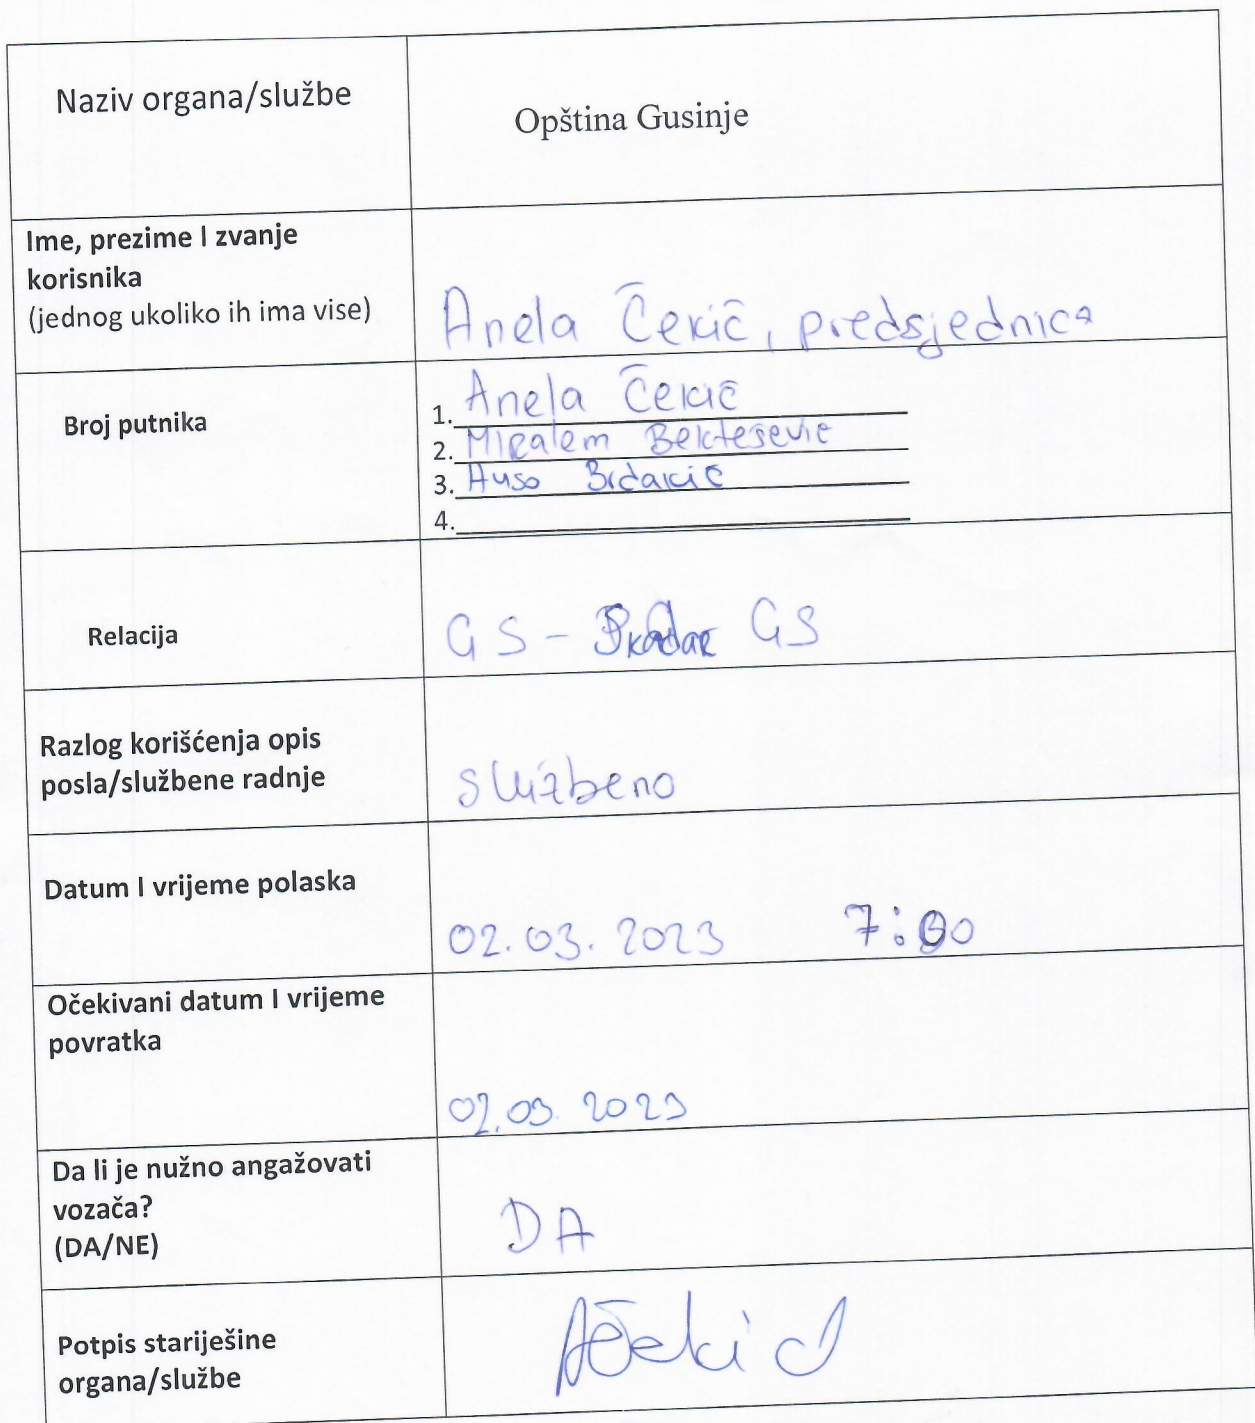 Naziv organa/službe
Opština Gusinje
Ime, prezime I zvanje
korisnika
(jednog ukoliko ih ima vise)
Anela Čekić, predsjednica
Broj putnika
1. Anela Čekić
2. Miralem Bektešević
3. Huso Brdakić
4.
Relacija
GS - Skadar GS
Razlog korišćenja opis
posla/službene radnje
službeno
Datum I vrijeme polaska
02.03.2023 7:00
Očekivani datum I vrijeme
povratka
02.03.2023
Da li je nužno angažovati
vozača?
(DA/NE)
DA
Potpis starješine
organa/službe
AČekić